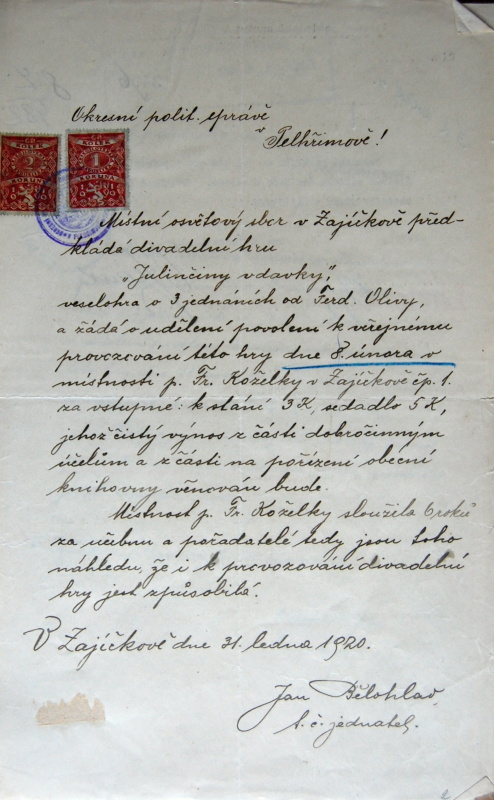 Okresní polit. správě
v Pelhřimově!
KOLEK
2
KORUNA
KOLEK
1
KORUNA
Místní osvětový sbor v Zajíčkově před-
kládá divadelní hru
„Julinčiny vdavky",
veselohra o 3 jednáních od Ferd. Olivy,
a žádá o udělení povolení k veřejnému
provozování této hry dne 8. února v
místnosti p. Fr. Koželky v Zajíčkově čp. 1.
za vstupné: k stání 3 K, sedadlo 5 K,
jehož čistý výnos z části dobročinným
účelům a z části na pořízení obecní
knihovny věnován bude.
Místnost p. Fr. Koželky sloužila 6 roků
za učebnu a pořadatelé tedy jsou toho
náhledu, že i k provozování divadelní
hry jest způsobilá.
V Zajíčkově dne 31. ledna 1920.
Jan Bělohlav,
t. č. jednatel.